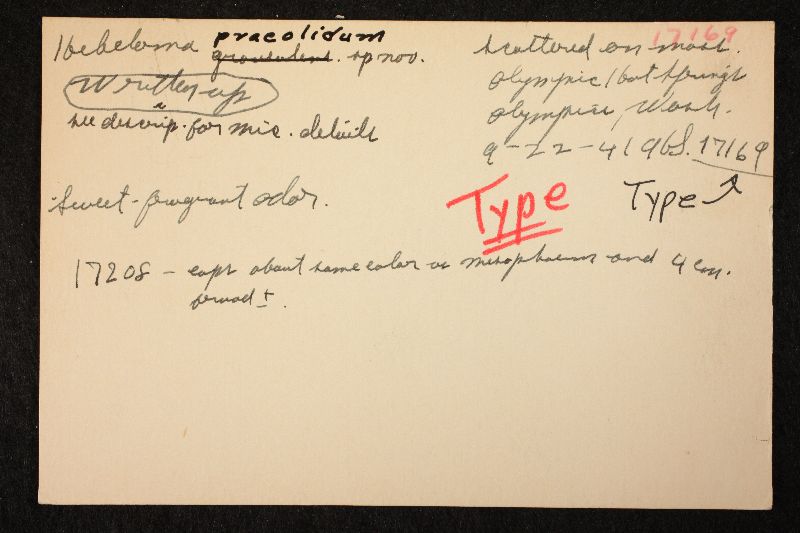 17169
Hebeloma praeolidum
sp nov.
scattered on moss.
Written up
Olympic Hot Springs
see descrip. for mic. details
Olympics, Wash.
9-22-41 AHS. 17169
Type
Type
Sweet-fragrant odor.
17208 - caps about same color as mesophaeum and 4 cm.
broad ±.